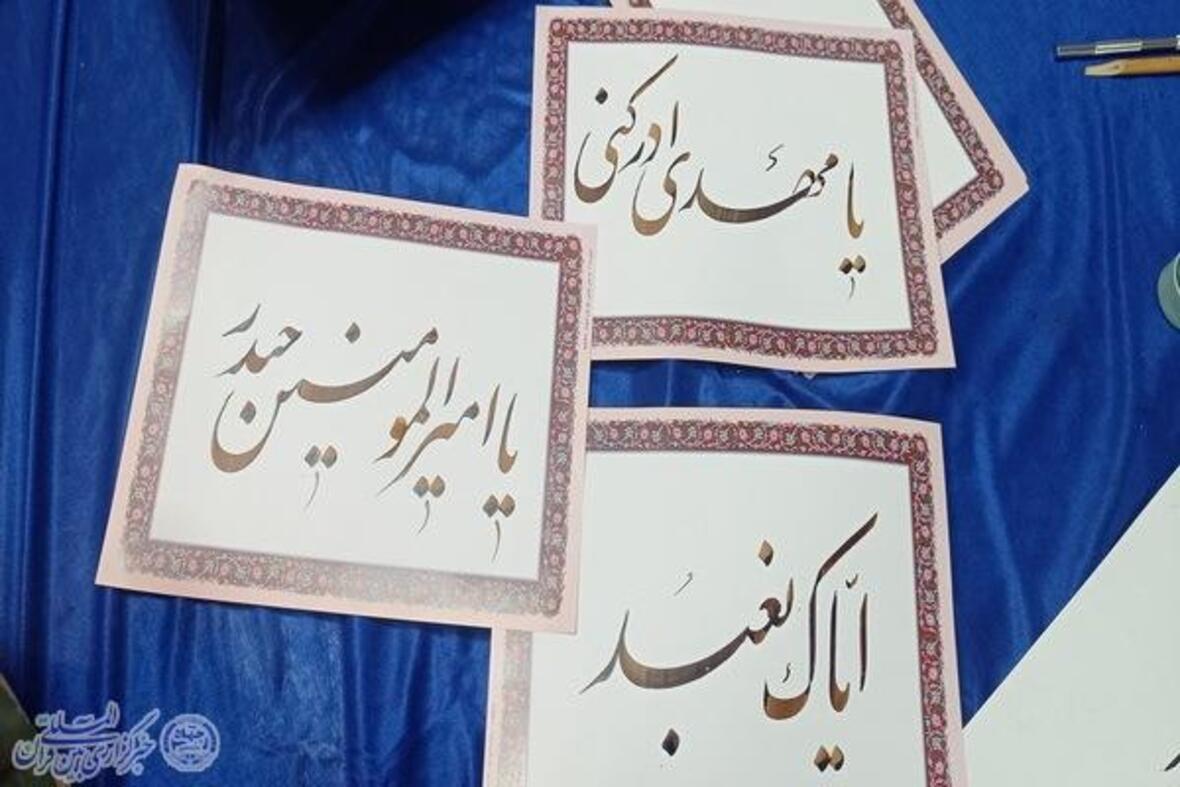 یا مهدی ادرکنی
یا امیرالمومنین حیدر
ایّاک نعبُد
خبرگزاری بین المللی قرآن